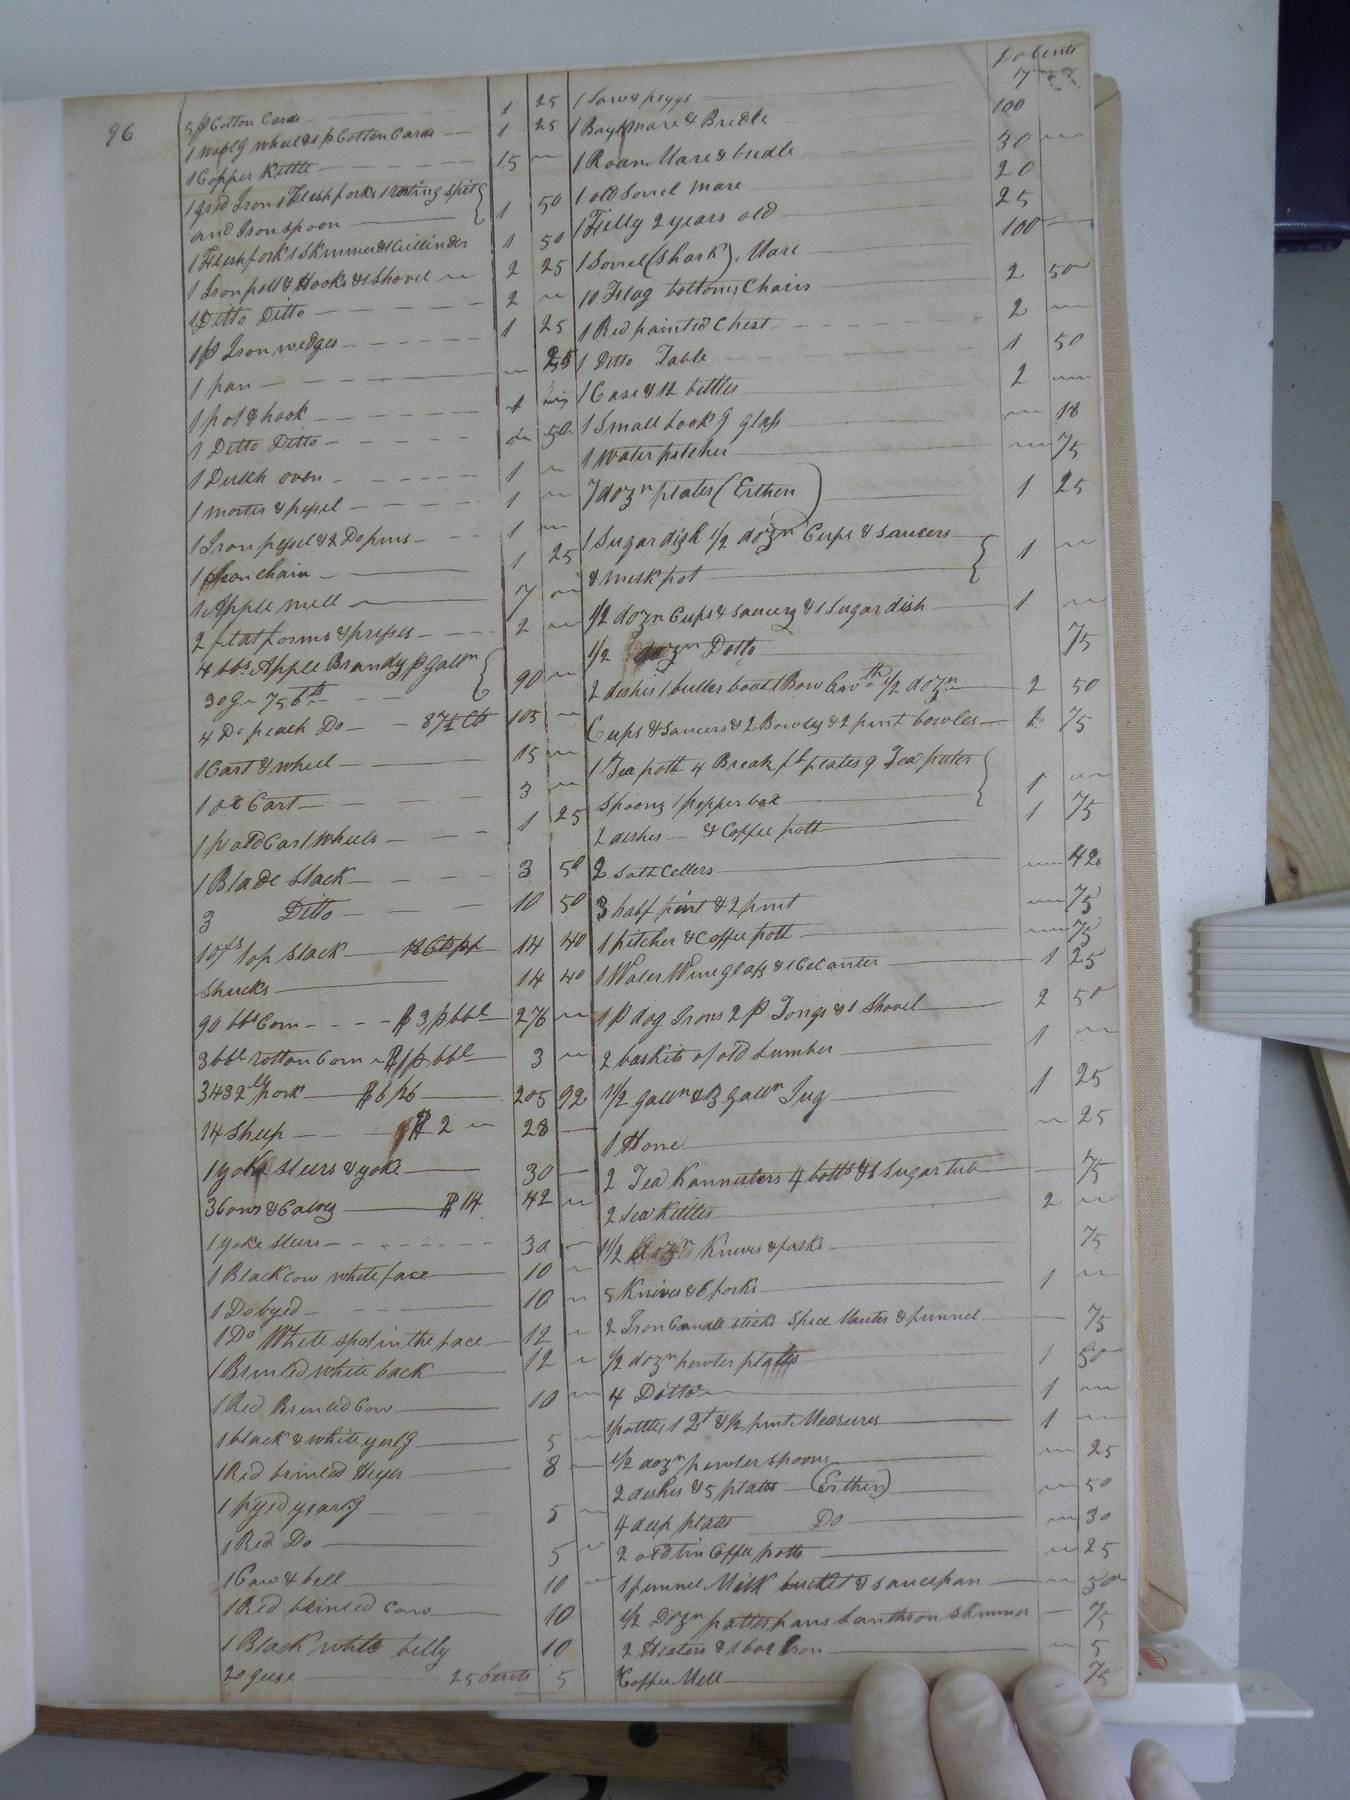 96
5 p Cotton Cards 1 25
1 wheel & 1 p Cotton Cards 1 25
1 Copper Kettle 15
1 grid Iron 1 Fleshfork 1 rosting spit
and Iron spoon 1 50
1 Fleshfork 1 Skimmer & 1 Cullinder 1 50
1 Iron pott & Hooks & 1 Shovel 2 25
1 Ditto Ditto 2
1 p Iron wedges 1 25
1 pan 25
1 pot & hook 1
1 Ditto Ditto 50
1 Dutch oven 1
1 morter & pessel 1
1 Iron pessel & 2 Do pins 1
1 Iron chain 1 25
1 Apple mill 7
2 flat forms & presses 2
4 bbs. Apple Brandy p galln
30 g 75 90
4 Do peach Do 87½ Cts 105
1 Cart & wheel 15
1 ox Cart 3
1 p old Cart wheels 1 25
1 Blade Stack 3 50
3 Ditto 10 50
top Stack 14 40
Shucks 14 40
90 bbs Corn $3 p bbl 276
3 bbl rotton Corn $1 p bbl 3
3432 lb pork $6 205 92
14 Sheep $2 28
1 yoke steers & yoke 30
3 Cows & Calves $14 42
1 yoke steers 30
1 Black cow white face 10
1 Do 10
1 Do White spot in the face 12
1 Brinled white back 12
1 Red Brinled Cow 10
1 black & white yerlg 5
1 Red brinled Heyer 8
1 pyed yearlg 5
1 Red Do 5
1 Cow & bell 10
1 Red brinled Cow 10
1 Black white belly 10
20 geese 25 Cents 5
Do Cents
1 Sow & piggs 17
1 Bay Mare & Bridle 100
1 Roan Mare & bridle 30
1 old Sorrel mare 20
1 Filly 2 years old 25
1 Sorrel (Shark) Mare 100
10 Flag bottom Chairs 2 50
1 Red painted Chest 2
1 Ditto Table 1 50
1 Case & 12 bottles 2
1 Small Look g glass 18
1 Water pitcher 75
7 dozn plates (Erthen) 1 25
1 Sugar dish ½ dozn Cups & Saucers
& milk pot 1
½ dozn Cups & Saucers & 1 Sugar dish 1
½ dozn Ditto 75
2 dishes 1 butter boat 1 Bow ½ dozn 2 50
Cups & Saucers & 2 Bowles & 2 pint bowles 2 75
1 Tea pott 4 Breakft plates 9 Tea
Spoons 1 pepper box 1
2 dishes & Coffee pott 1 75
2 Salt Cellers 42
3 half pint & 2 pint 75
1 pitcher & Coffee pott 75
1 Water Wine glass & 1 Decanter 1 25
1 P dog Irons 2 P Tongs & 1 Shovel 2 50
2 baskits of old Lumber 1
1 ½ galln & 3 galln Jug 1 25
1 Hone 25
2 Tea Kannisters 4 botts & 1 Sugar tub 75
2 Tea Kittles 2
1½ Dozn Knives & forks 75
5 Knives & 6 forks 1
2 Iron Candle sticks Spice Morter & funnel 75
½ dozn pewter plates 1 50
4 Ditto 1
1 pottle 1 Qt & ½ pint Measures 1
½ dozn pewter spoons 25
2 dishes & 5 plates (Erthen) 50
4 deep plates Do 30
2 old tin Coffee potts 25
1 funnel Milk bucket & saucepan 50
½ Dozn pattepans Lanthron Skimmer 75
2 Heaters & 1 box Iron 5
1 Coffee Mill 75